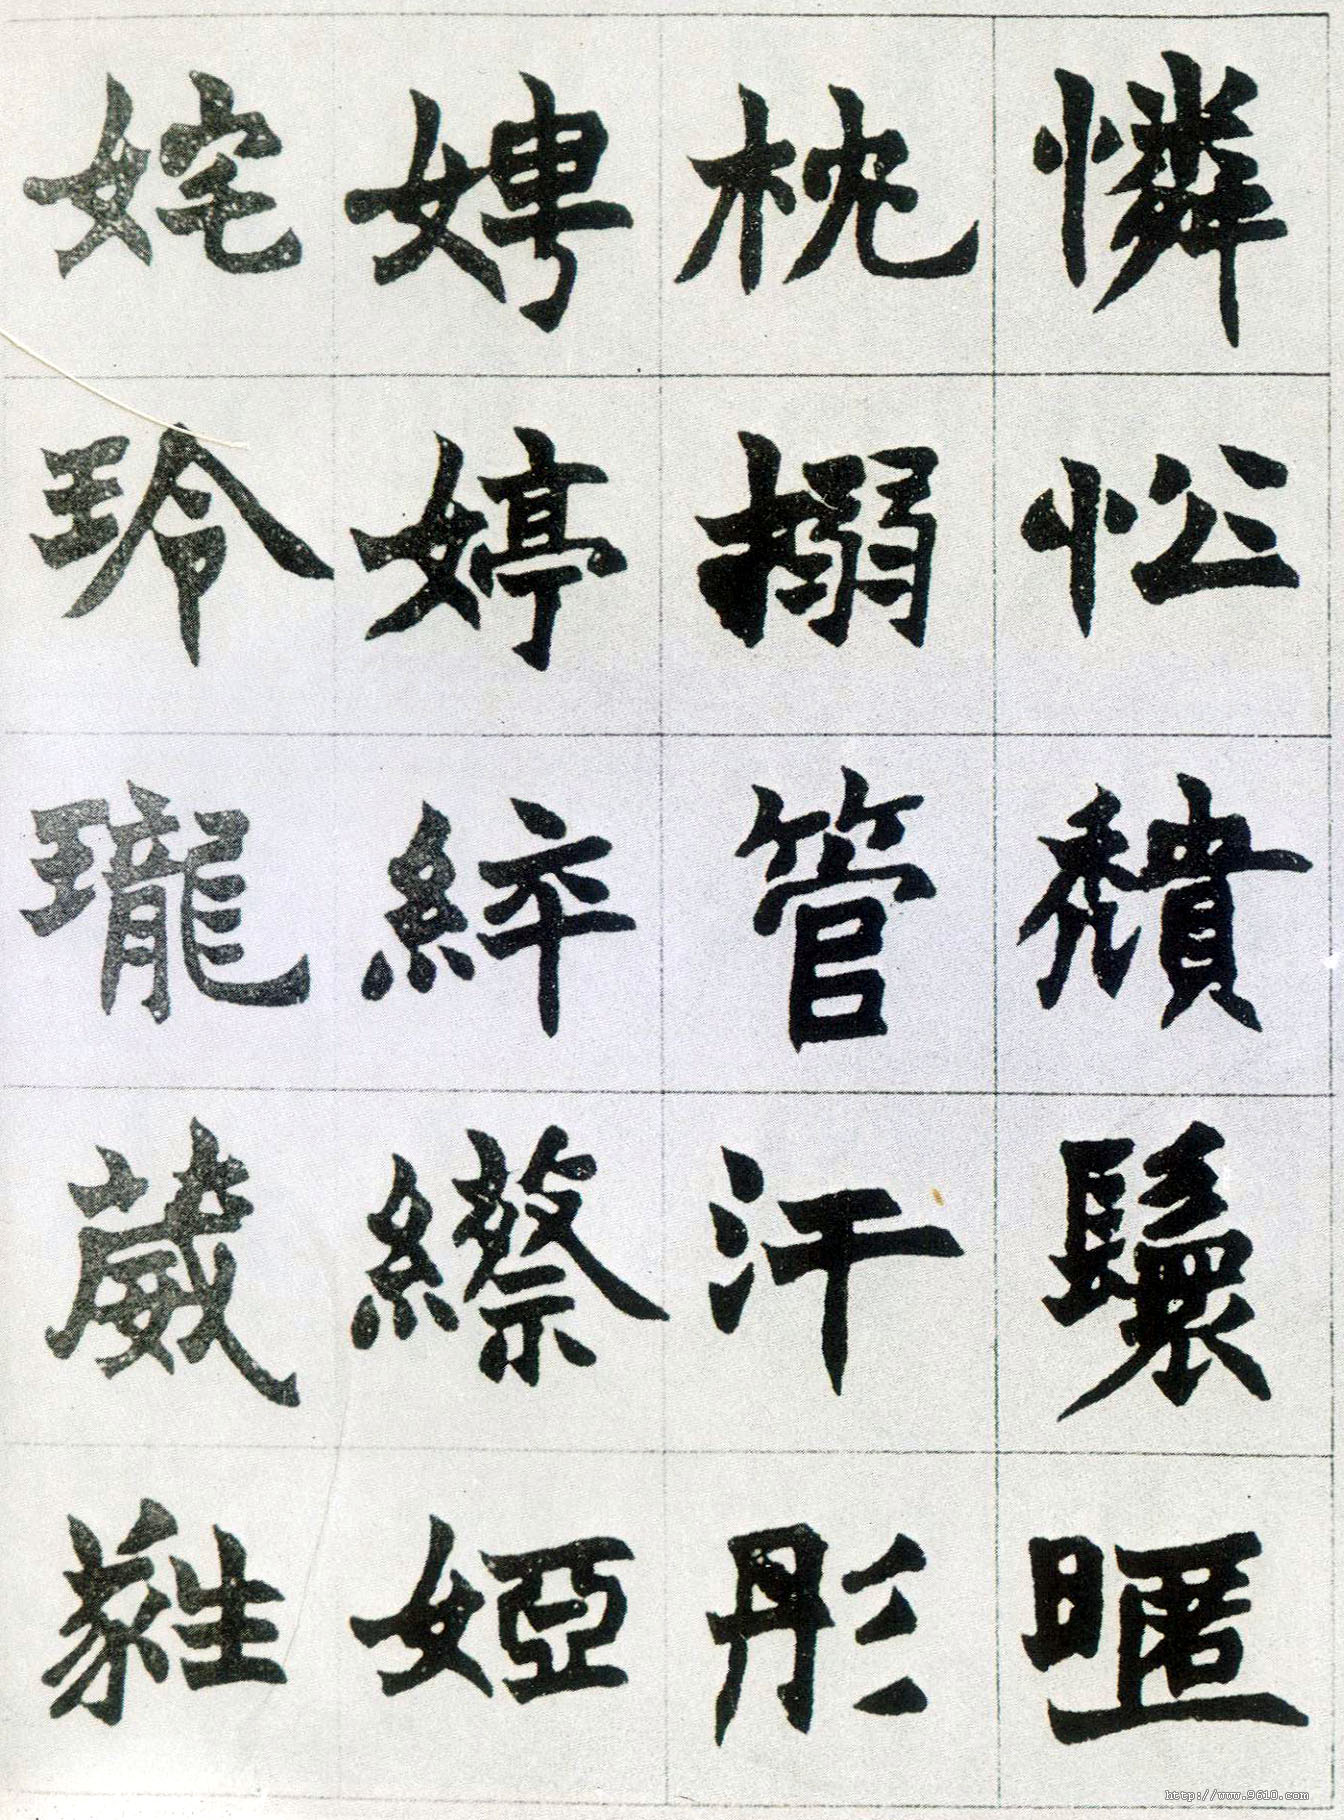 憐忪穨鬟暱
枕搦管汗彤
娉婷綷縩婭
姹玲瓏葳甤
http://www.9610.com